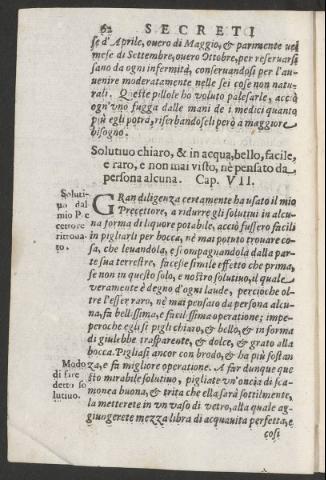 62 SECRETI
se d'Aprile, ouero di Maggio, & parimente nel
mese di Settembre, ouero Ottobre, per reseruarsi
sano da ogni infermità, conseruandosi per l'au-
uenire moderatamente nelle sei cose non natu-
rali. Queste pillole ho voluto palesarle, acciò
ogn'vno fugga dalle mani de i medici quanto
più egli potrà, riserbandoseli però a maggiore
bisogno.
Solutiuo chiaro, & in acqua, bello, facile,
e raro, e non mai visto, nè pensato da
persona alcuna. Cap. VII.
Soluti-
uo dal
mio Pre
cettore
ritroua-
to.
GRan diligenza certamente ha usato il mio
Precettore, a ridurre gli solutiui in alcu-
na forma di liquore potabile, acciò fussero facili
in pigliarli per bocca, nè mai potuto trouare co-
sa, che leuandola, e scompagnandola dalla par-
te sua terrestre, facesse simile effetto che prima,
se non in questo solo, e nostro solutiuo, il quale
veramente è degno d'ogni laude, percioche ol-
tre l'esser raro, nè mai pensato da persona alcu-
na, fà bellissima, e facilissima operatione; impe-
peroche egli si pigli chiaro, & bello, & in forma
di giulebbe trasparente, & dolce, & grato alla
bocca. Pigliasi ancor con brodo, & ha più sostan
za, e fà migliore operatione. A far dunque que
sto mirabile solutiuo, pigliate vn'oncia di sca-
monea buona, & trita che ella sarà sottilmente,
la metterete in vn vaso di vetro, alla quale ag-
giungerete mezza libra di acquauita perfetta, e
Modo
di fare
detto so
lutiuo.
cosi